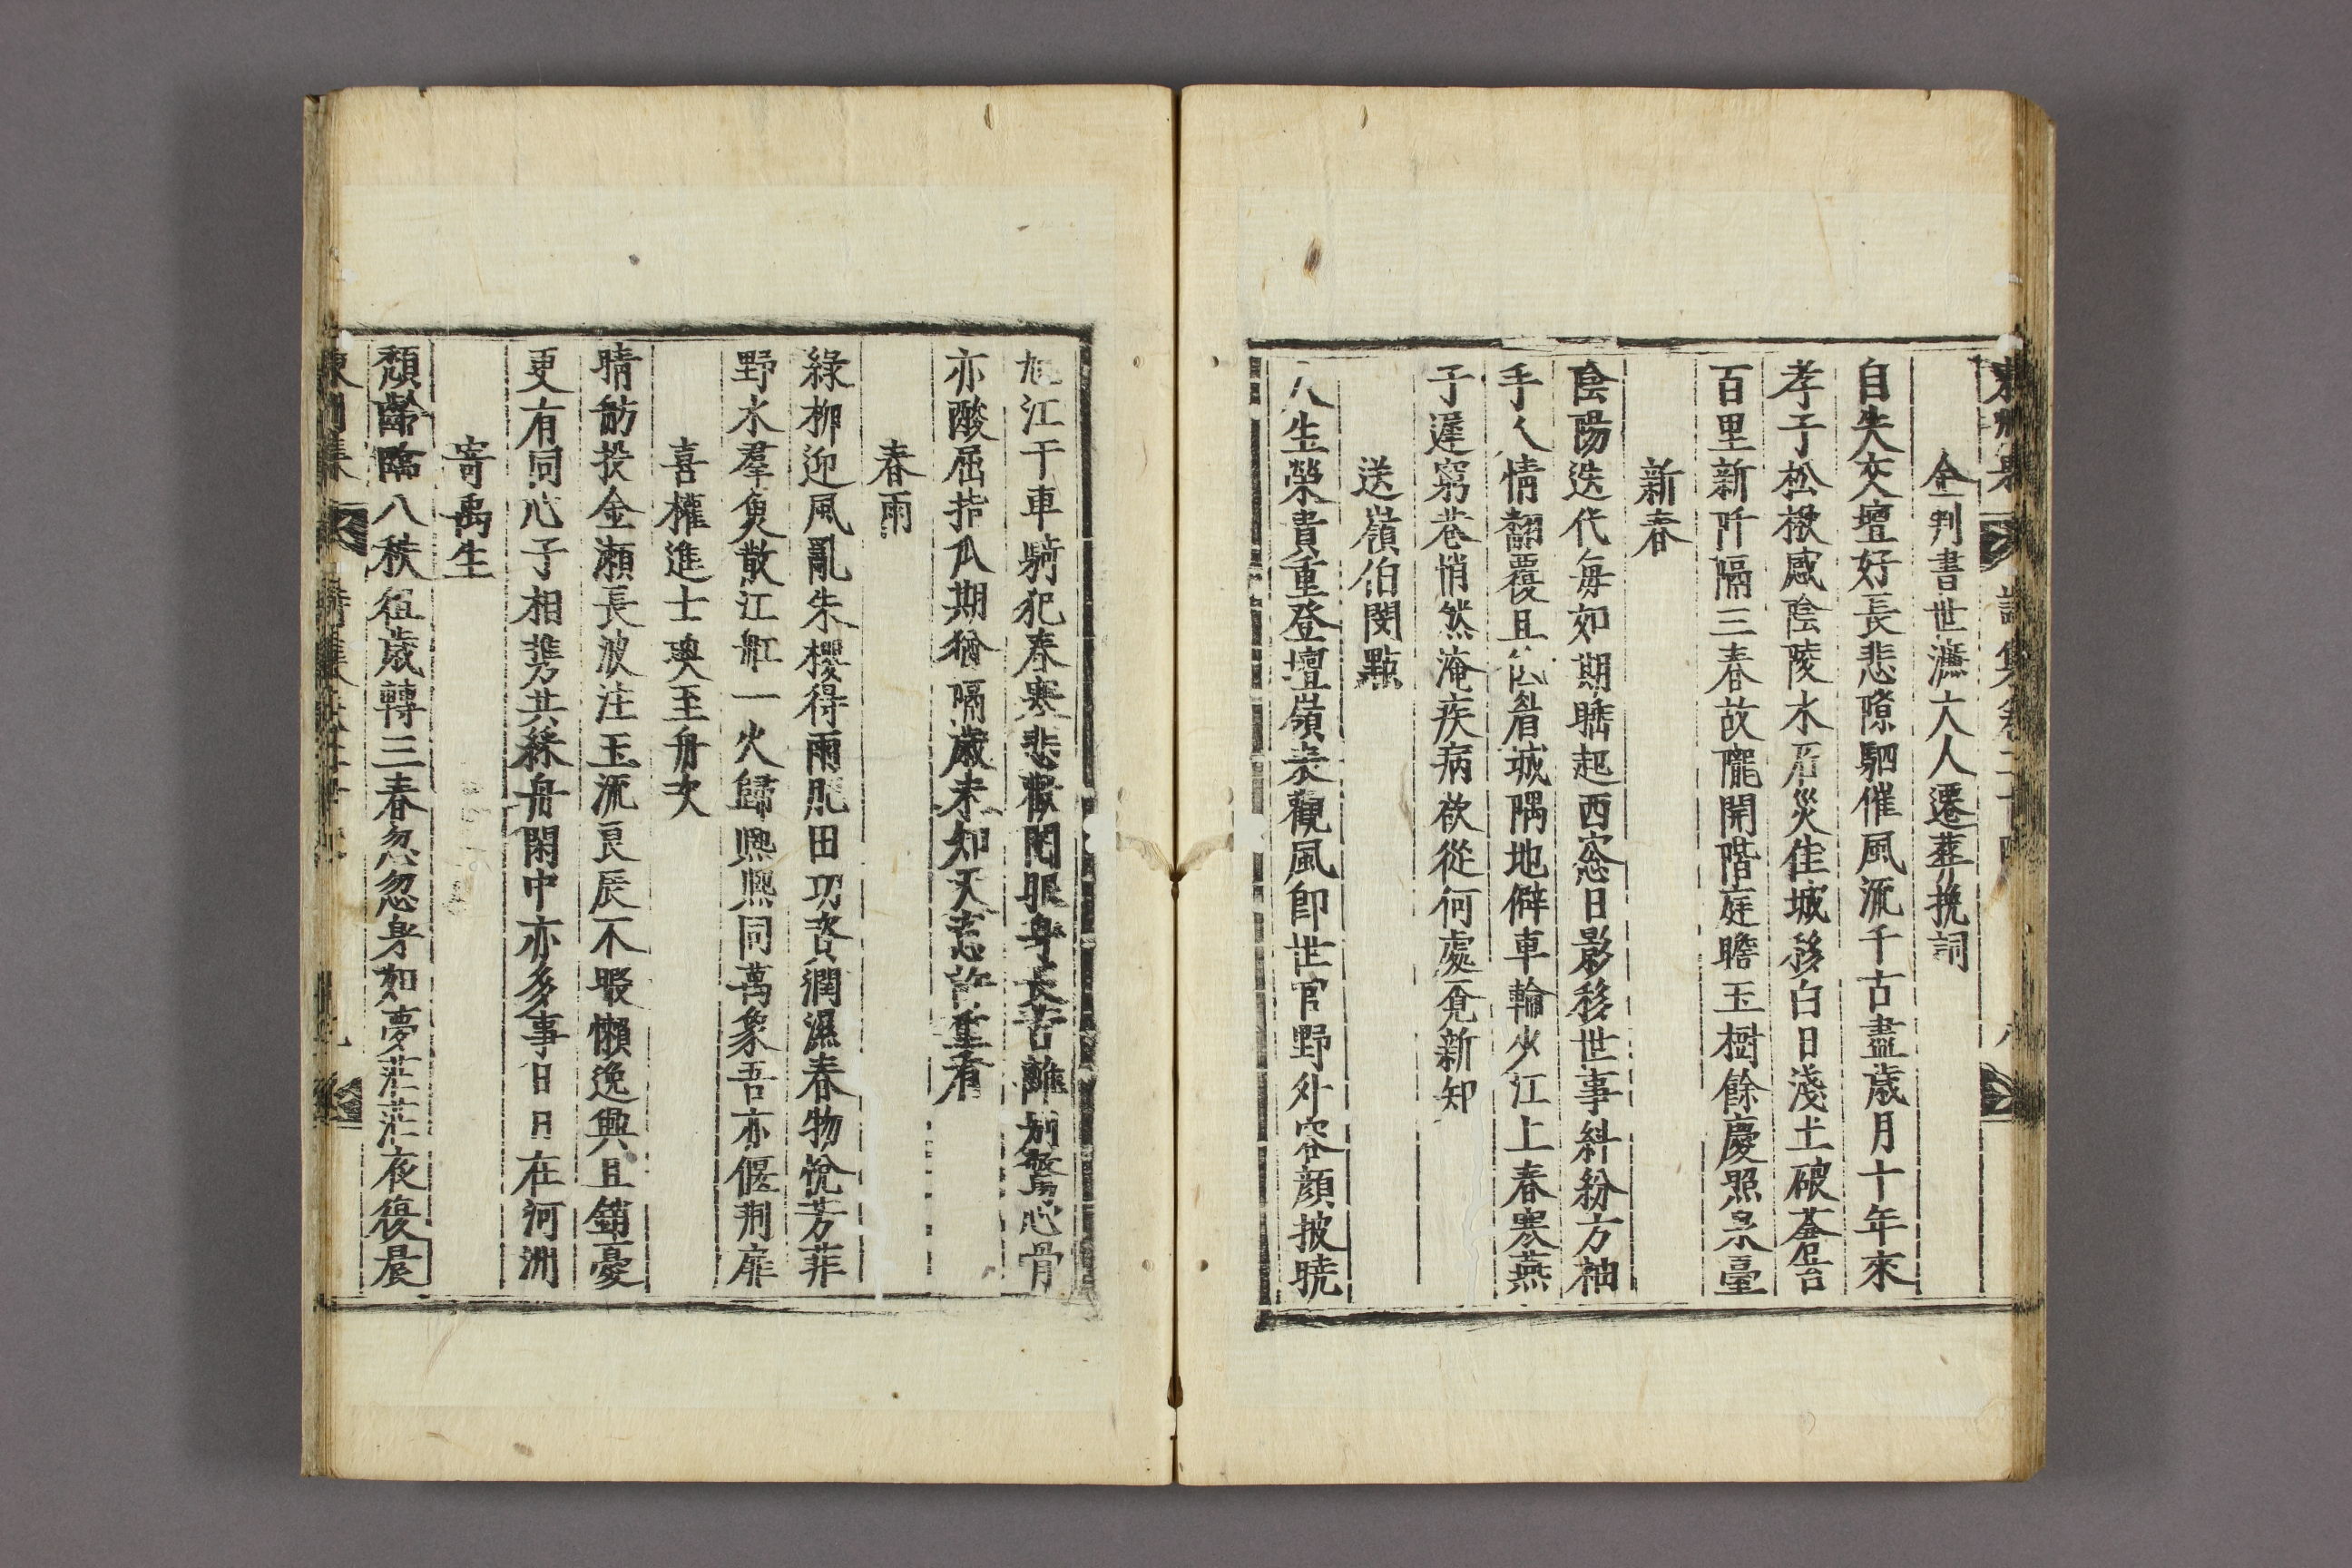 金判書世濂大人遷葬挽詞
自失交壇好長悲隙駟催風流千古盡歲月十年來
孝子松楸感陰陵水石災佳城移白日淺土破蒼苔
百里新阡隔三春故隴開階庭瞻玉樹餘慶照泉臺
新春
陰陽迭代每如期睡起西窓日影移世事糾紛方袖
手人情翻覆且低眉城隅地僻車輪少江上春寒燕
子遲窮巷悄然淹疾病欲從何處覓新知
送嶺伯閔點
人生榮貴重登壇嶺表觀風即世官野外容顔披曉
旭江干車騎犯春寒悲歡閱眼身長苦離別驚心骨
亦酸屈指瓜期猶隔歲未知天意許重看
春雨
綠柳迎風亂朱櫻得雨肥田功資潤濕春物悅芳菲
野水羣魚散江舡一火歸熙熙同萬象吾亦偃荆扉
喜權進士瑍至舟次
晴舫投金瀨長波注玉流良辰不暇懶逸興且銷憂
更有同心子相携共繫舟閑中亦多事日日在河洲
寄禹生
頹齡臨八秩徂歲轉三春忽忽身如夢茫茫夜復晨